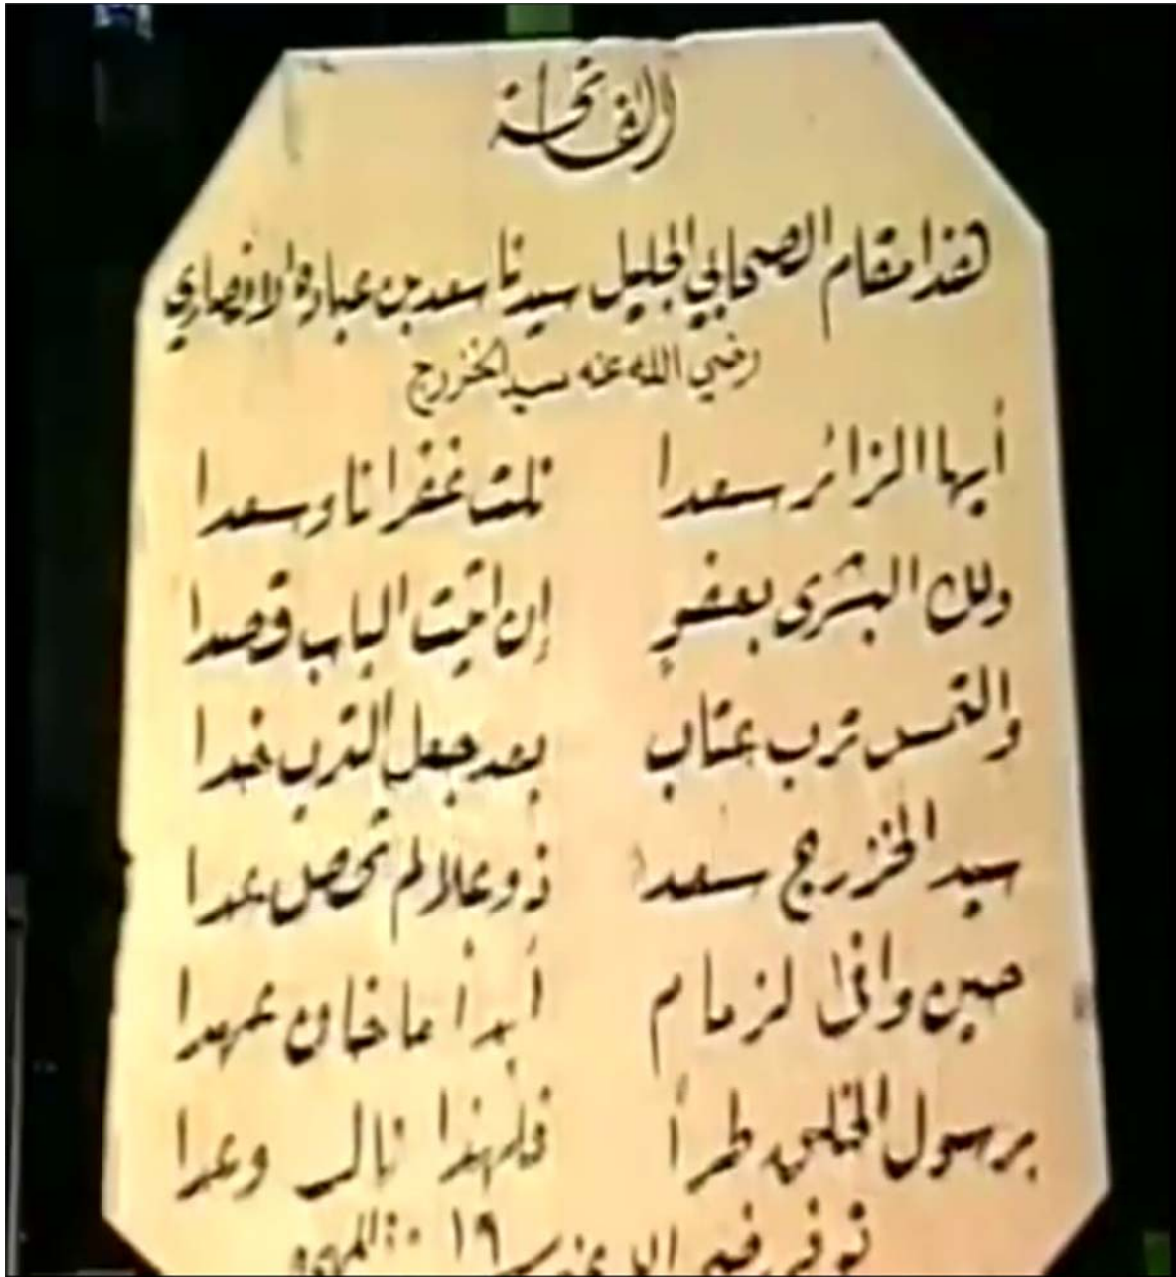 الفاتحة
هذا مقام الصحابي الجليل سيدنا سعد بن عبادة الانصاري
رضي الله عنه سيد الخزرج
أيها الزائر سعدا نلت غفرانا وسعدا
ولك البشرى بعفوٍ إن اتيت الباب قصدا
والتمس ترب عتاب بعد جعل الترب خدا
سيد الخزرج سعدا ذو علا لم تحص عدا
حين وافى لزمام أبدأ ما خان عهدا
برسول الخلق طرأ فلهذا نال وعدا
توفي رضي الله عنه ١٩